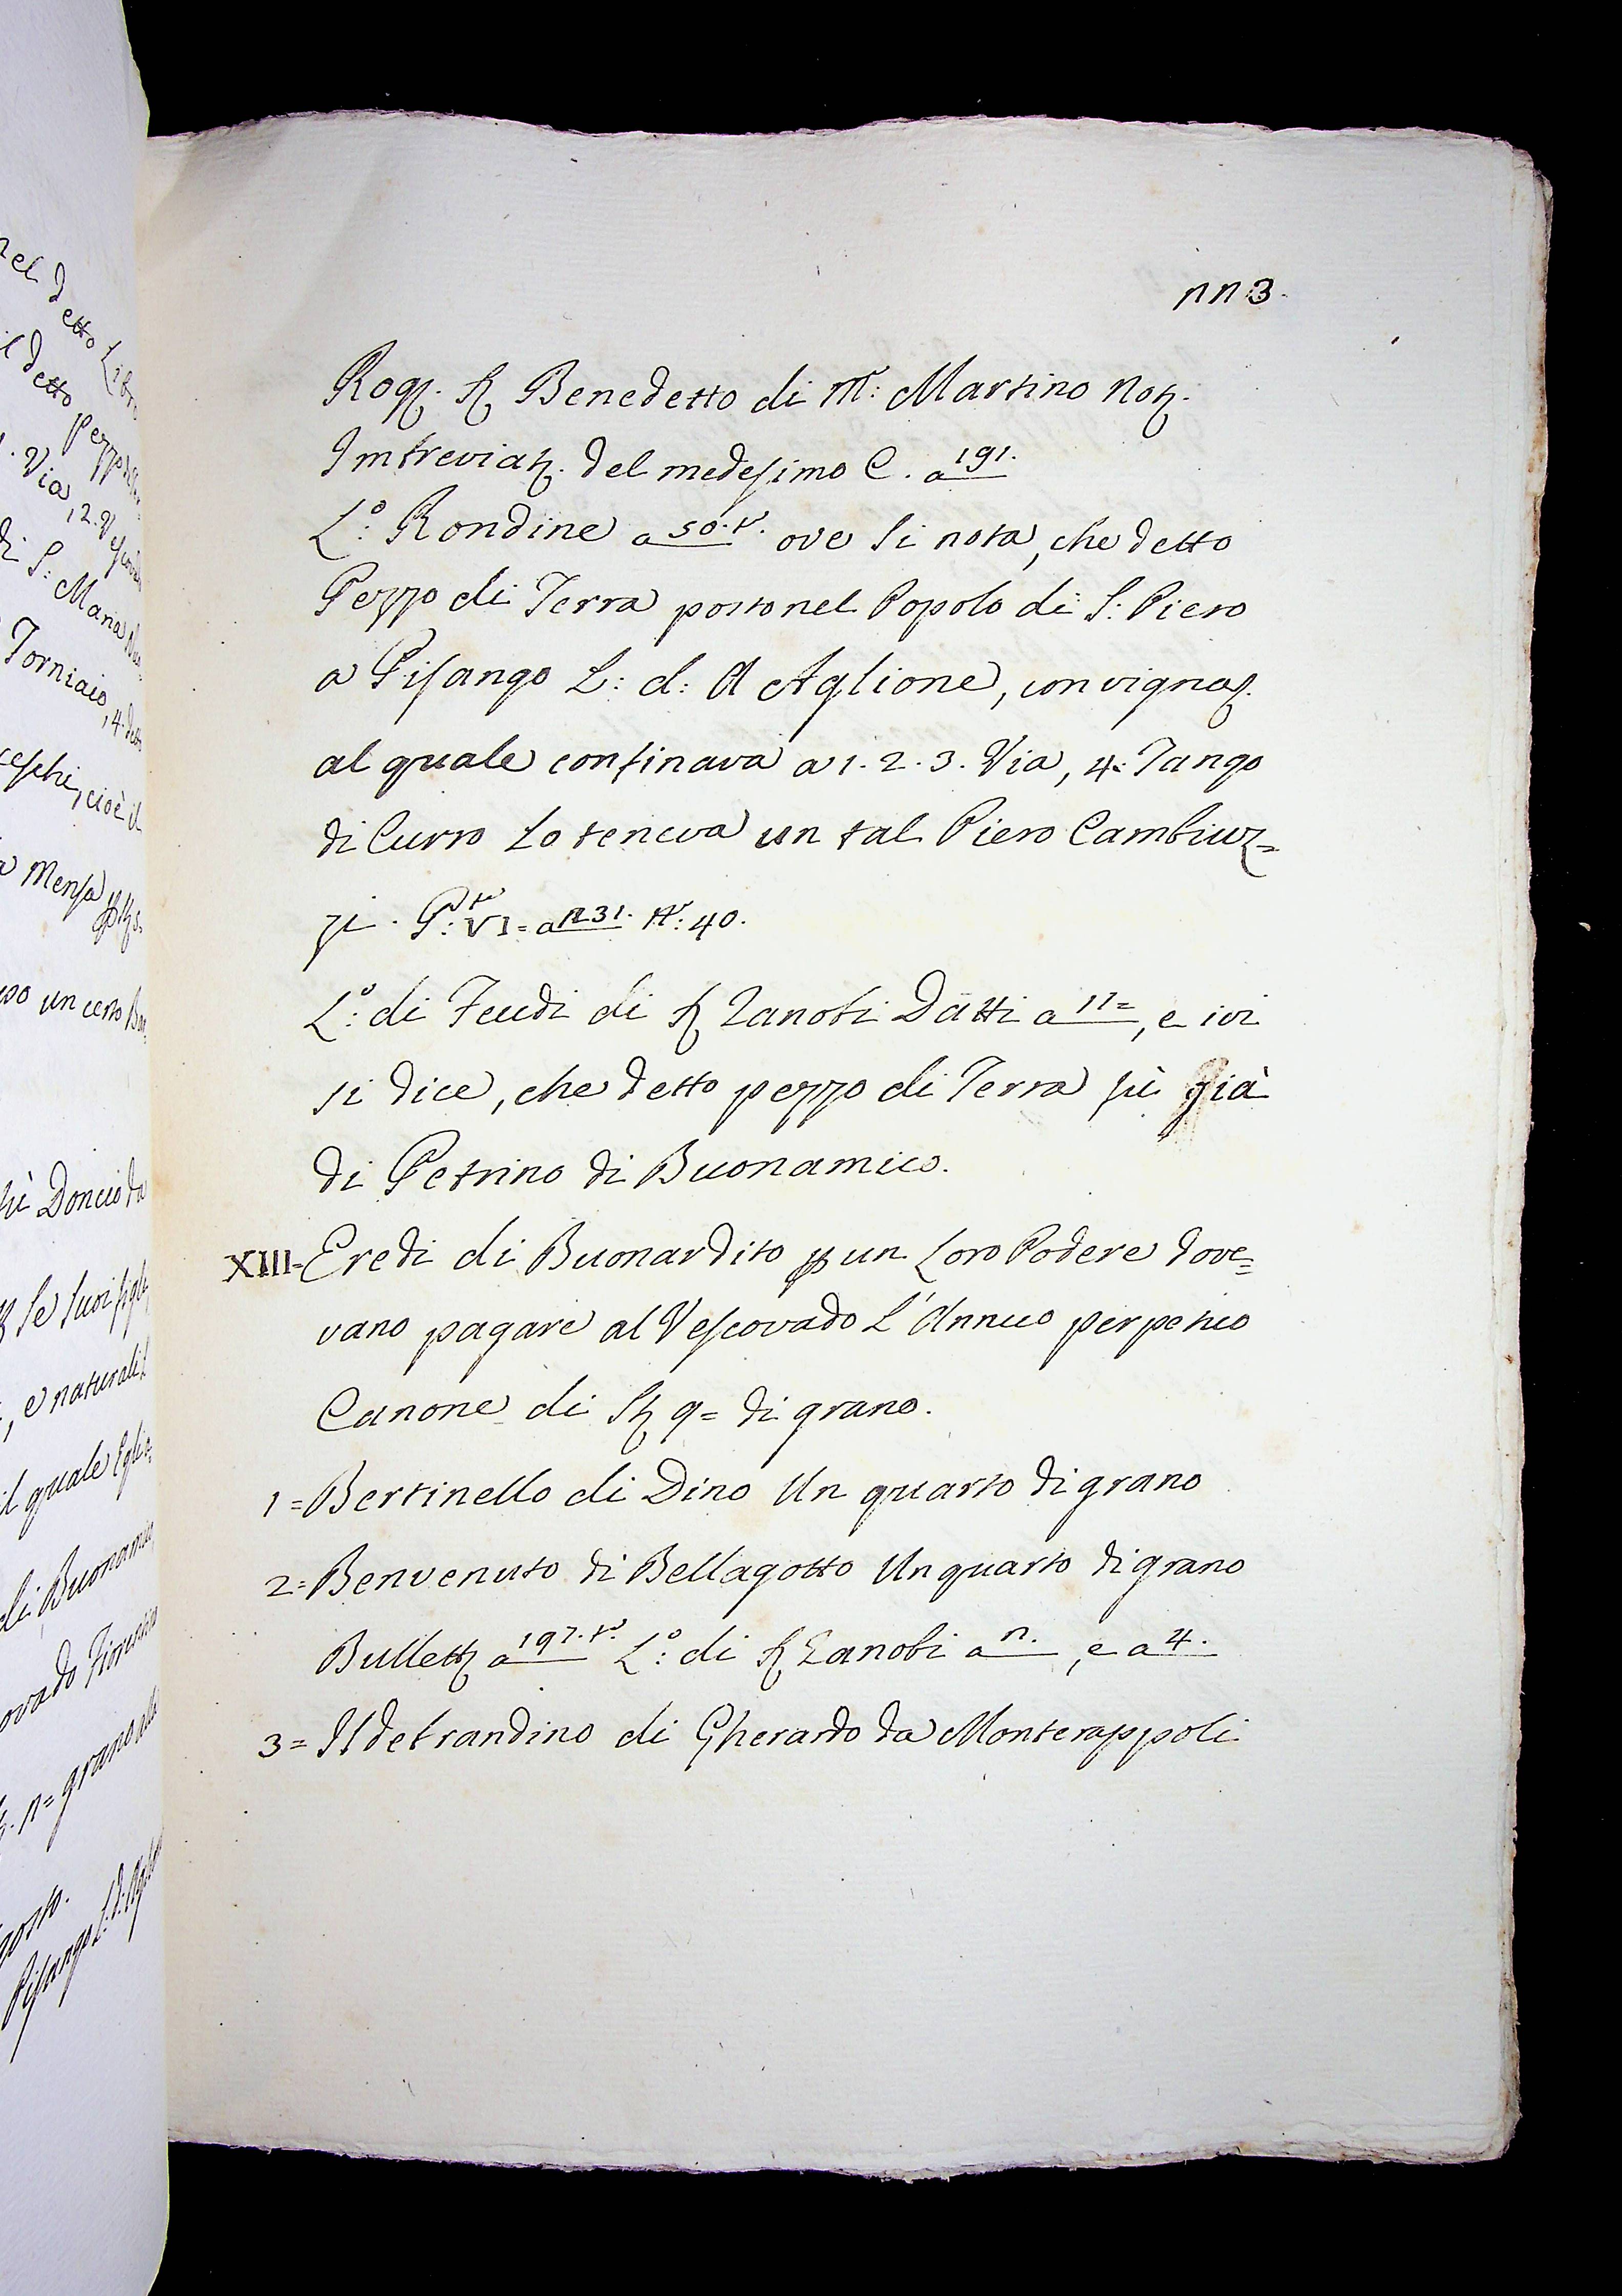 nel detto Libro
il detto pezzo
Via, 2. Vescovado
di S: Maria
Torniaio, 4. detto
ceschi, cioè il
Mensa p
un certo
fù Doncio da
Se suoi figli
, e naturali
il quale Egli
di Buonamico
ovado Fiorentino
n= grano
gosto.
Pisango L: d:
113.
Rog. S Benedetto di M: Martino Not.
Imbreviat. del medesimo C. a 191.
L:o Rondine a 50.t. ove si nota, che detto
Pezzo di Terra posto nel Popolo di S: Piero
a Pisango L: d: A Aglione, con vignaz.
al quale confinava a 1. 2. 3. Via, 4: Tango
di Curro Lo teneva un tal Piero Cambiuz=
zi. P:t VI= a 1231. N: 40.
L:o di Feudi di S Zanobi Datti a 11=, e ivi
si dice, che detto pezzo di Terra fù già
di Petrino di Buonamico.
XIII= Eredi di Buonardito p un Loro Podere dove=
vano pagare al Vescovado L'Annuo perpetuo
Canone di St 9= di grano.
1= Bertinello di Dino Un quarto di grano
2= Benvenuto di Bellagotto Un quarto di grano
Bullett a 197.t. L:o di S Zanobi a 11., e a 4.
3= Ildebrandino di Gherardo da Monterappoli